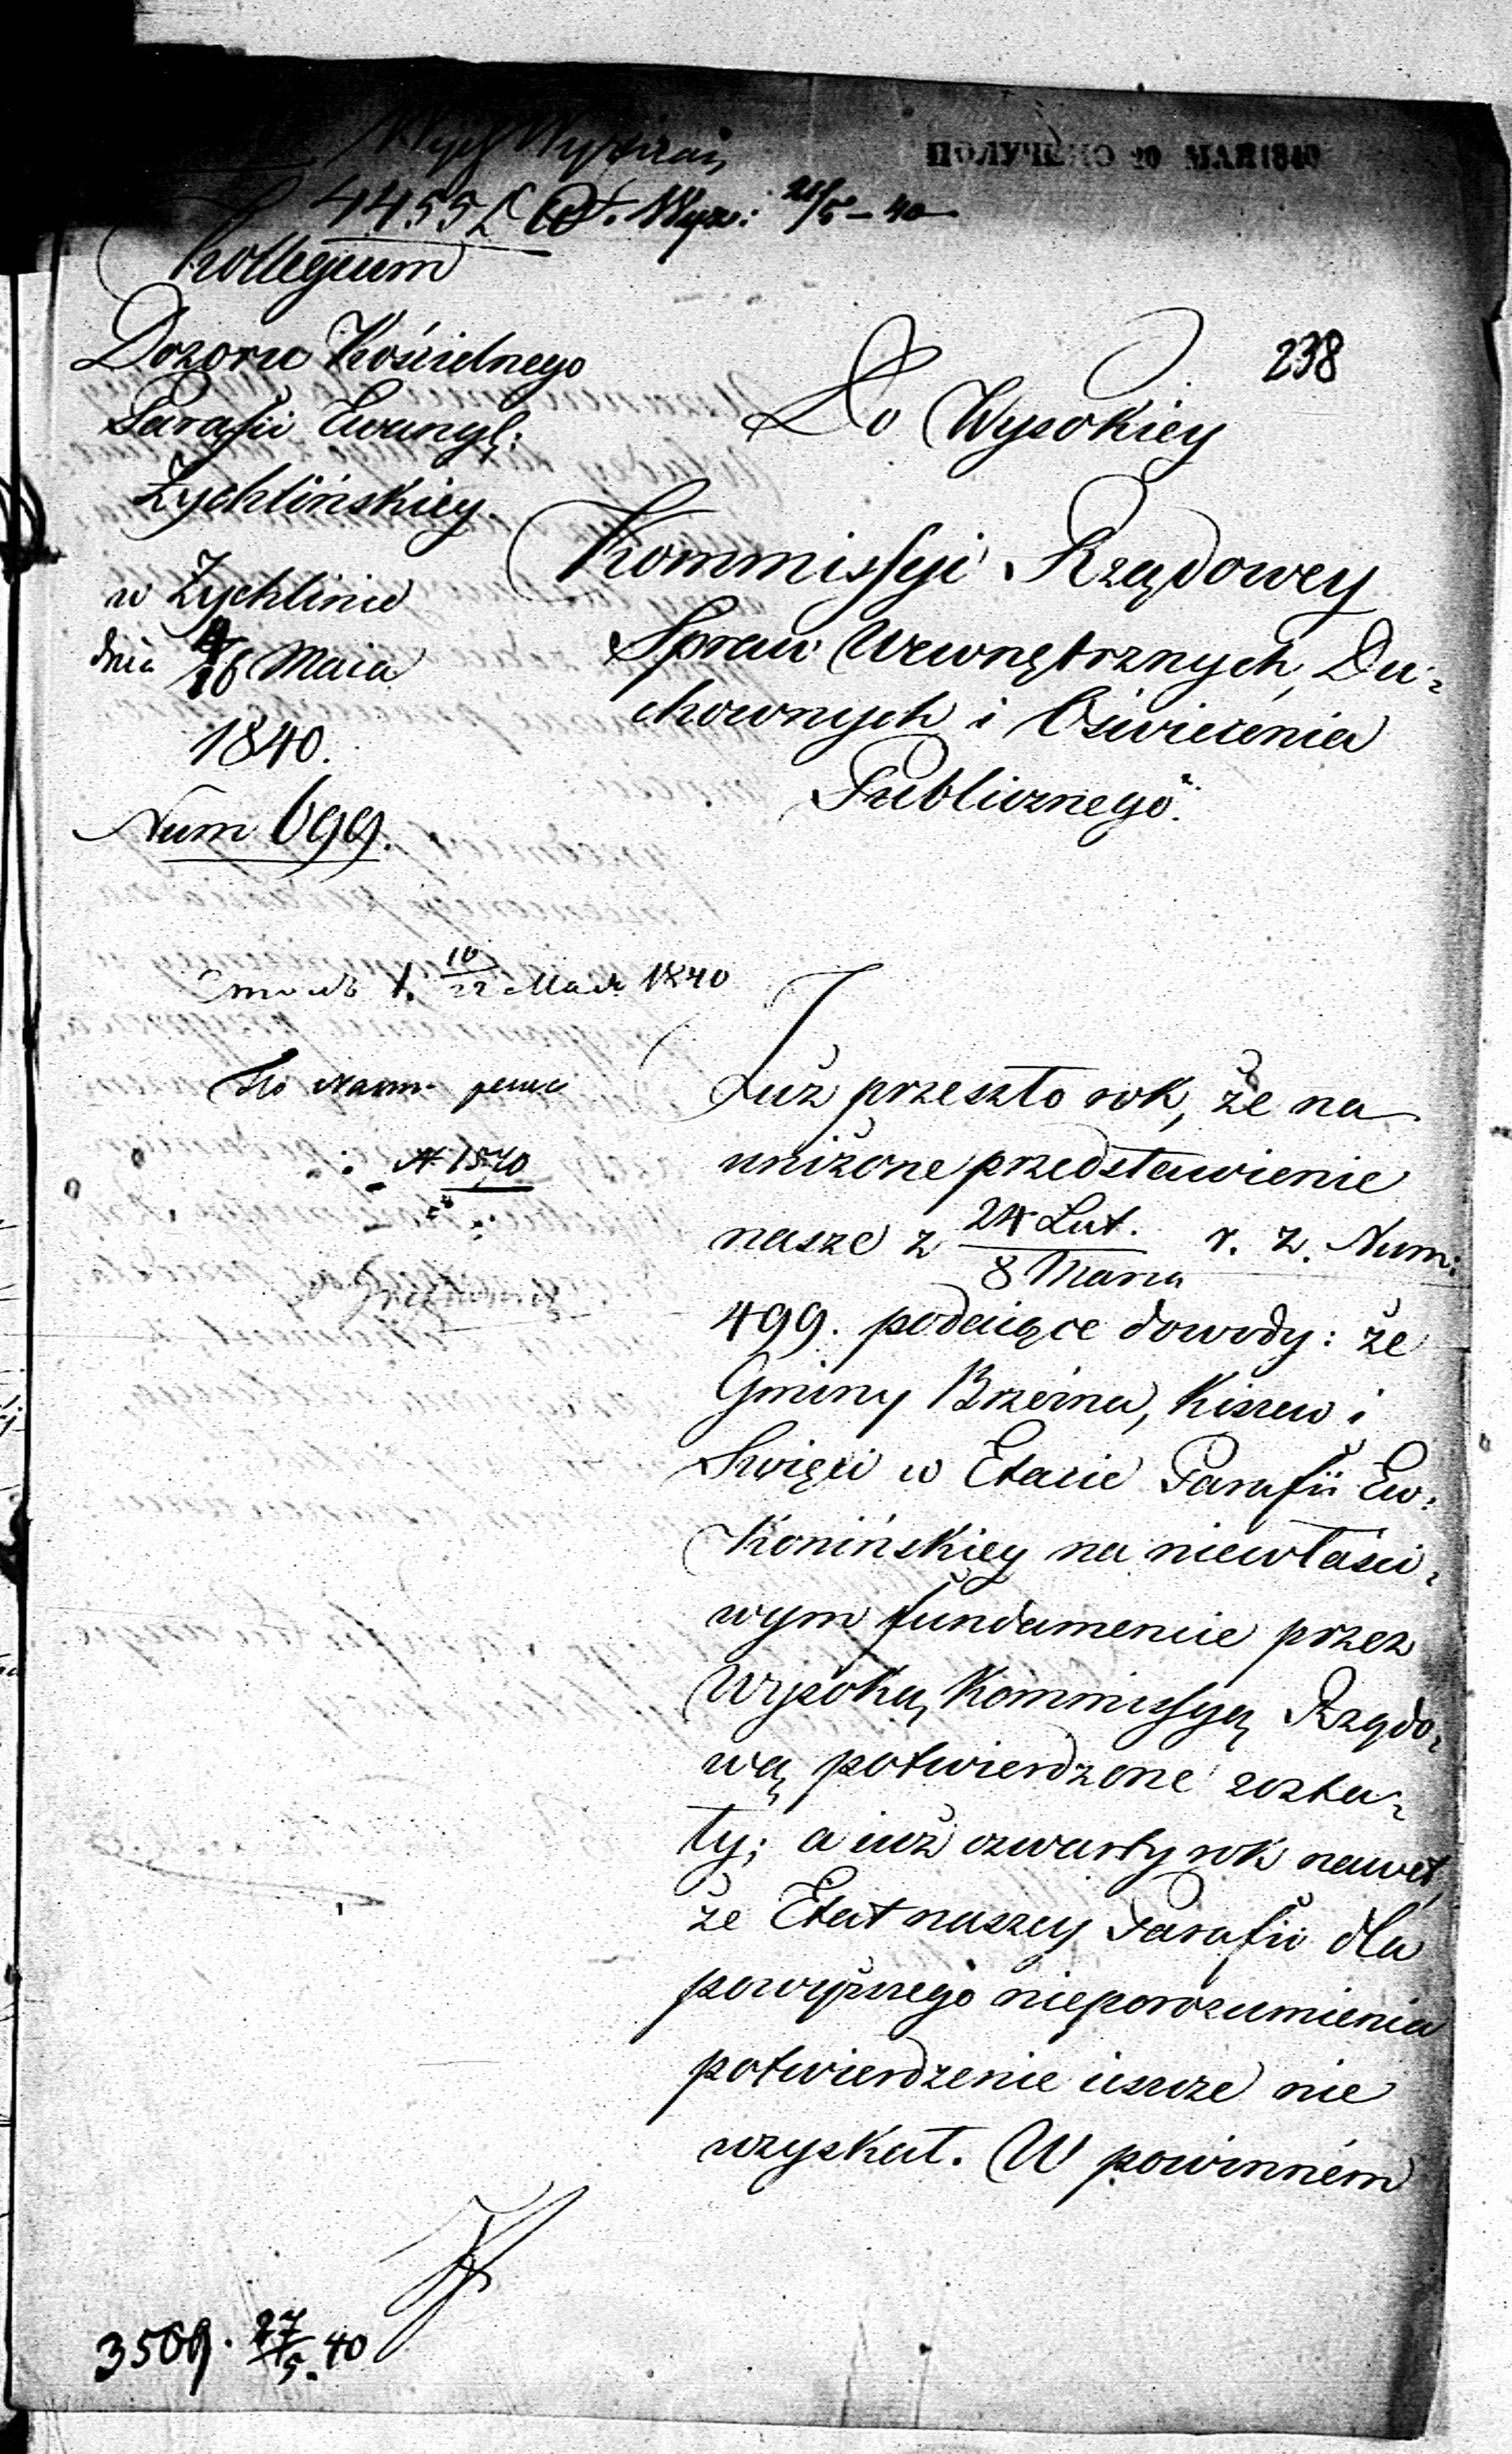 ПОЛУЧЕНО 20 МАЯ 1840
Wydz Wyznań
4455
Kollegium
Dozoru Kościelnego
Parafii Ewangl:
Żychlińskiey.
w Żychlinie
dnia 4/16 Maia
1840.
Num 699.
238
Do Wysokiey
Kommissyi Rządowey
Spraw Wewnętrznych, Du-
chownych i Oświecenia
Publicznego.
10/22 Maia 1840
№ 1570
Już przeszło rok, że na
uniżone przedstawienie
nasze z 24 Lut./8 Marca r. z. Num:
499. podaiące dowody: że
Gminy Brzeźna, Kiszew i
Święci w Etacie Parafii Ew:
Konińskiey na niewłaści-
wym fundamencie przez
Wysoką Kommissyą Rządo-
wą potwierdzone zosta-
ły; a iuż czwarty rok nawet,
że Etat naszey Parafii dla
powyższego nieporozumienia
potwierdzenie ieszcze nie
uzyskał. W powinném
3509. 27/5. 40